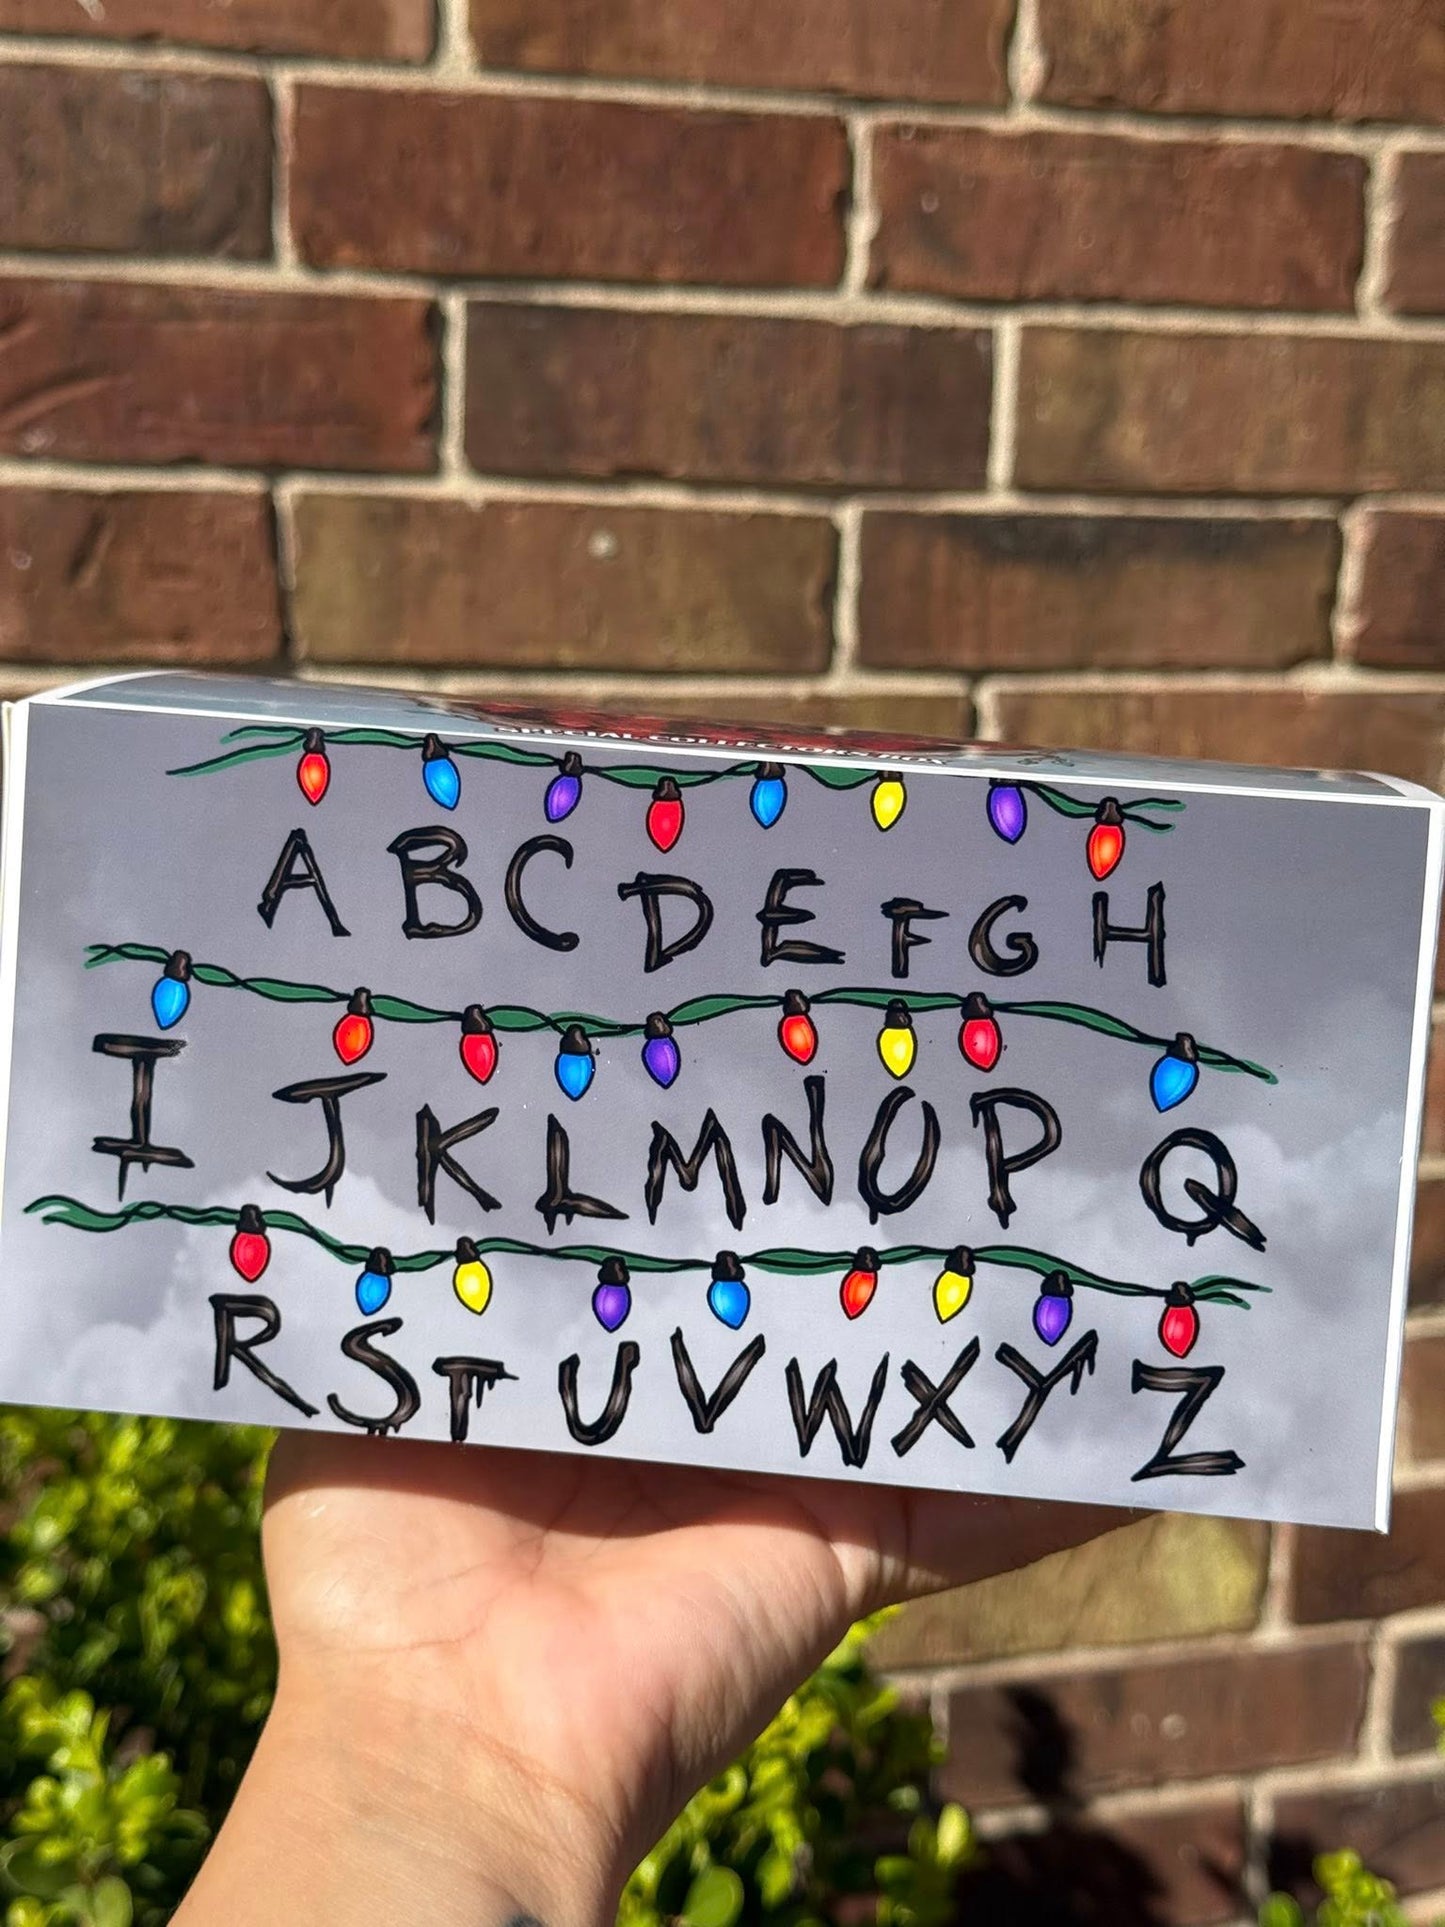 SPECIAL COLLECTOR'S BOX
A B C D E F G H
I J K L M N O P Q
R S T U V W X Y Z